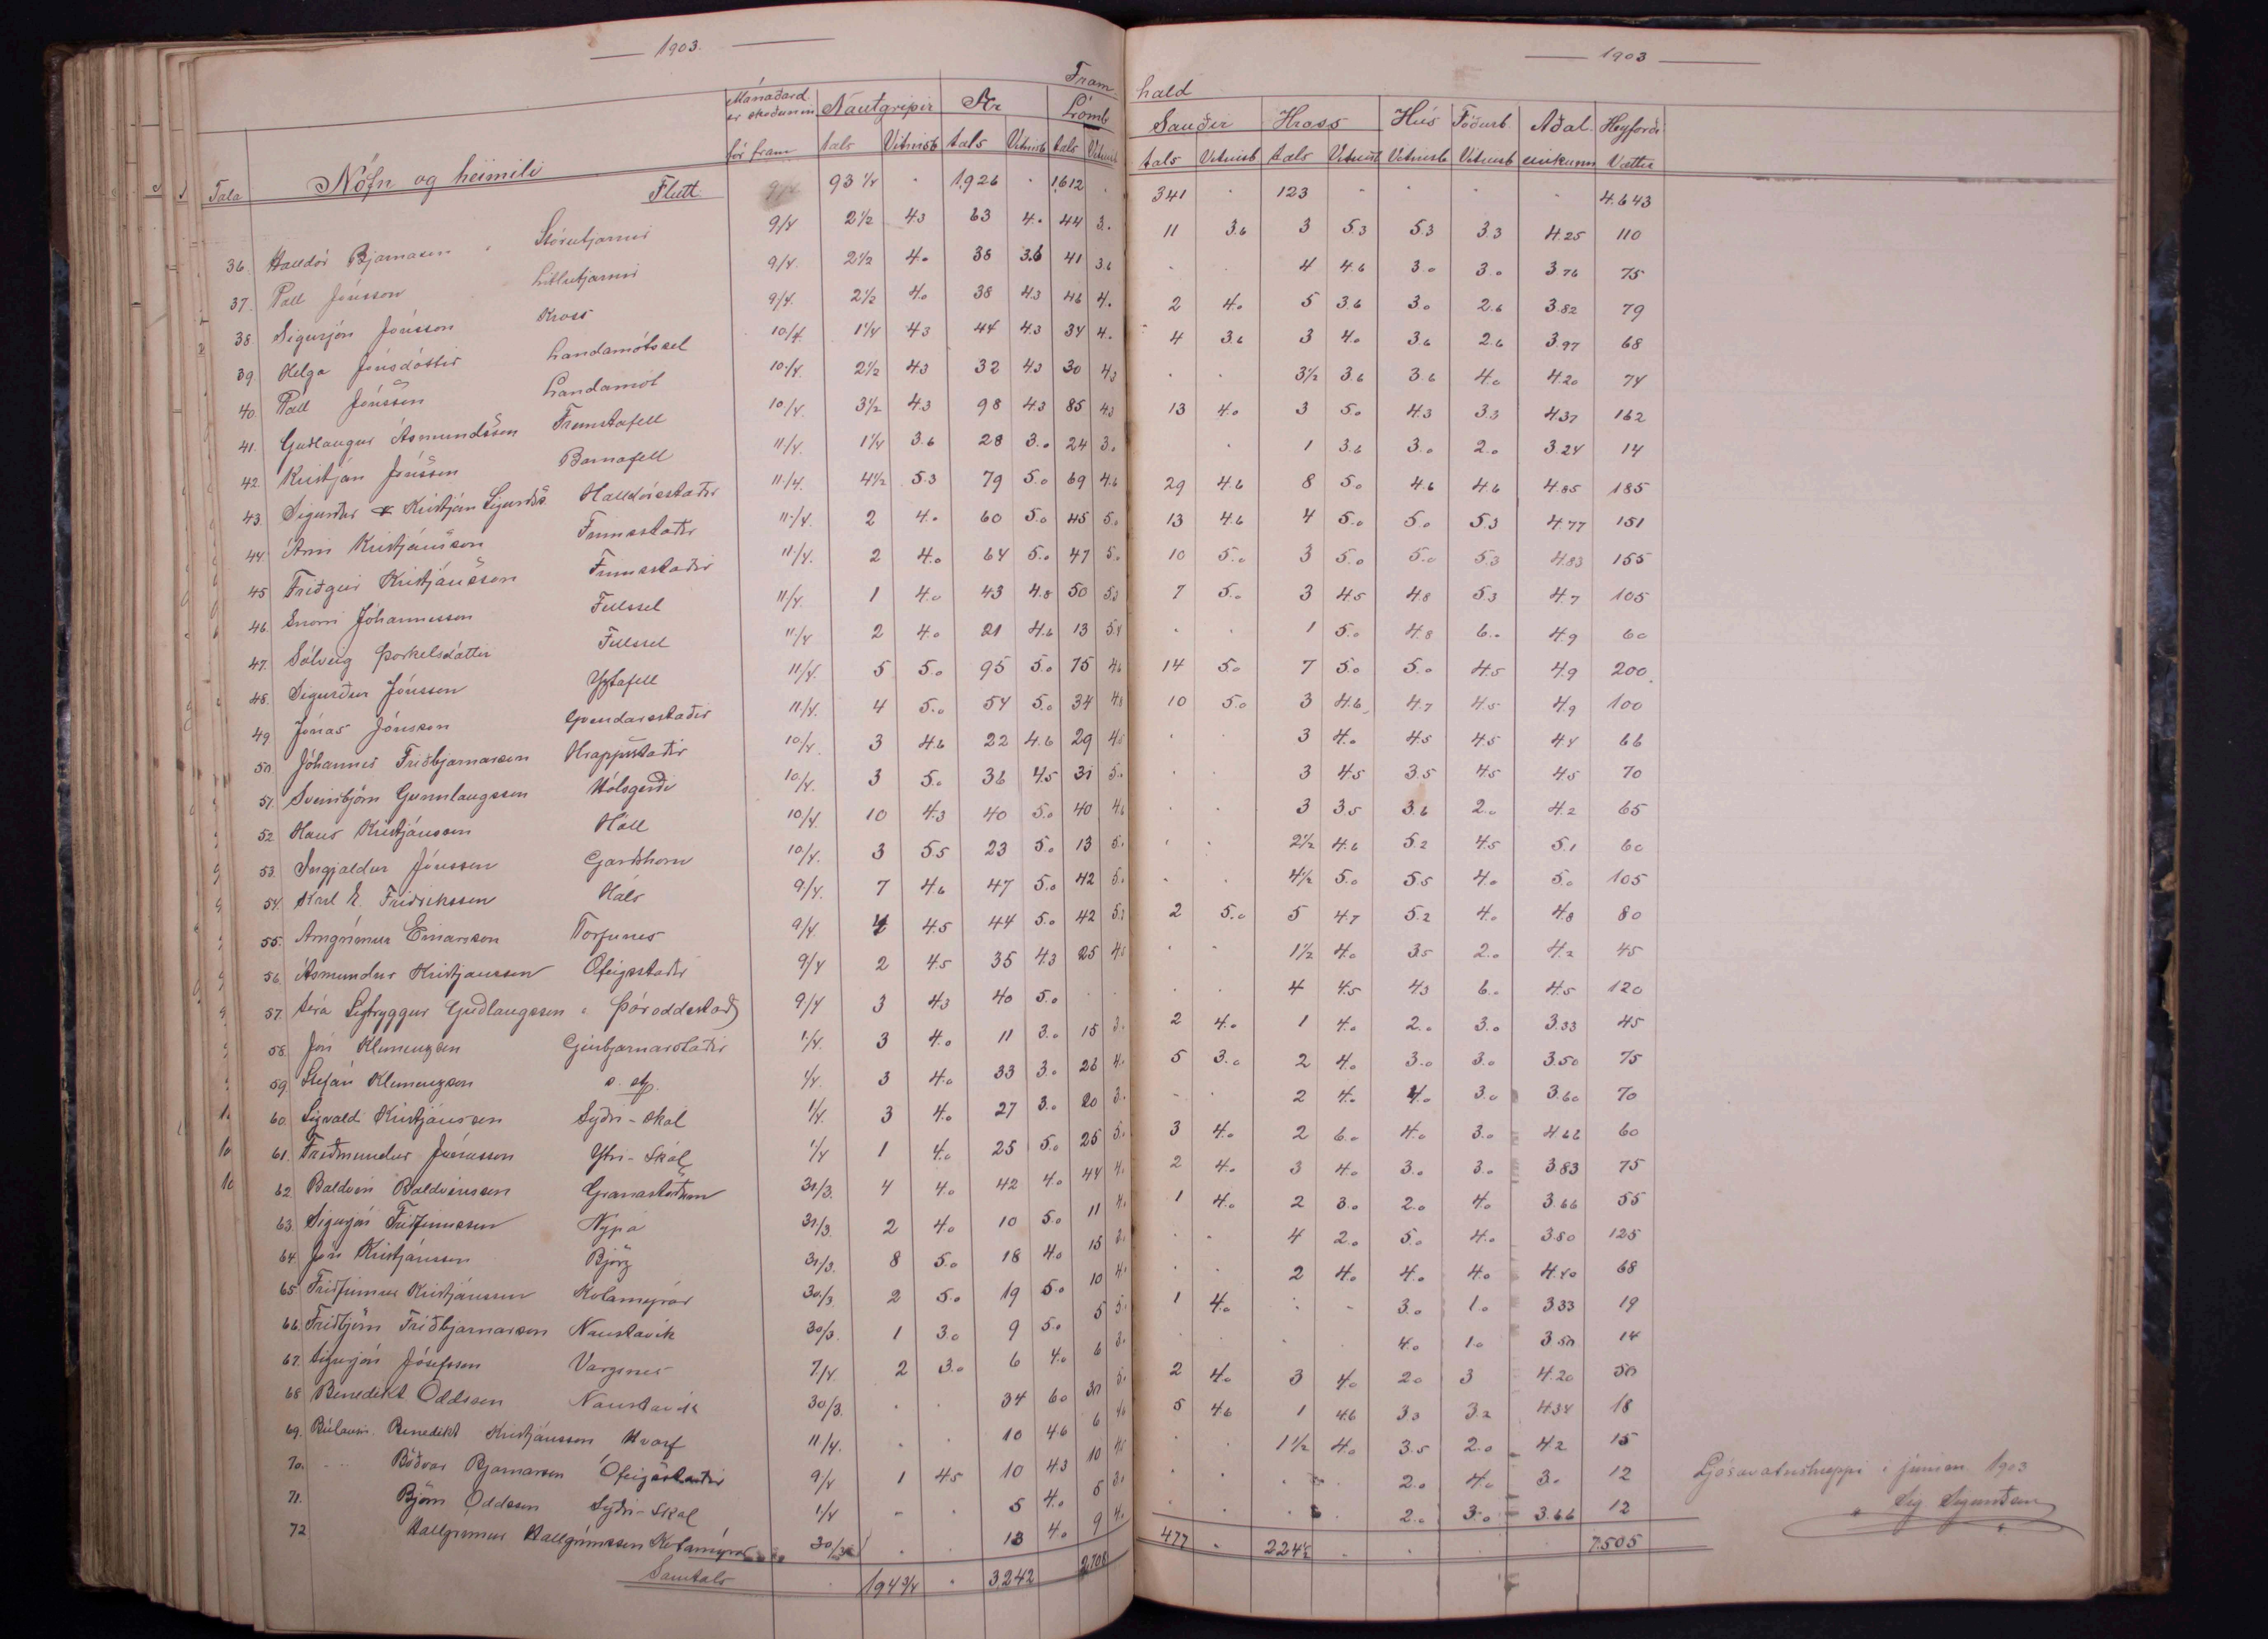 1903. 1903
Fram hald
Tala Nöfn og heimili Mánaðard. er skoðunin fór fram Nautgripir Ær Lömb Sauðir Hross Hús Fóðurb Aðal- Heyforði
tals Vitnisb tals Vitnisb tals Vitnisb tals Vitnisb tals Vitnisb Vitnisb Vitnisb einkunn Vættir
Flutt 93 1/4 1,926 1,612 341 123 4.643
36. Halldór Bjarnason Stórutjarnir 9/4 2 1/2 4.3 63 4.0 44 3.0 11 3.6 3 5.3 5.3 3.3 4.25 110
37. Páll Jónsson Litlutjarnir 9/4. 2 1/2 4.0 38 3.6 41 3.6 4 4.6 3.0 3.0 3.76 75
38. Sigurjón Jónsson Kross 9/4. 2 1/2 4.0 38 4.3 46 4.0 2 4.0 5 3.6 3.0 2.6 3.82 79
39. Helga Jónsdóttir Landamótssel 10/4 1 1/4 4.3 44 4.3 34 4.0 4 3.6 3 4.0 3.6 2.6 3.97 68
40. Páll Jónsson Landamót 10./4. 2 1/2 4.3 32 4.3 30 4.3 3 1/2 3.6 3.6 4.0 4.20 74
41. Guðlaugur Ásmundsson Fremstafell 10/4. 3 1/2 4.3 98 4.3 85 4.3 13 4.0 3 5.0 4.3 3.3 4.37 162
42. Kristján Jónsson Barnafell 11./4. 1 1/4 3.6 28 3.0 24 3.0 1 3.6 3.0 2.0 3.24 14
43. Sigurður & Kristján Sigurðss Halldórsstaðir 11./4. 4 1/2 5.3 79 5.0 69 4.6 29 4.6 8 5.0 4.6 4.6 4.85 185
44. Árni Kristjánsson Finnsstaðir 11./4. 2 4.0 60 5.0 45 5.0 13 4.6 4 5.0 5.0 5.3 4.77 151
45 Friðgeir Kristjánsson Finnsstaðir 11./4. 2 4.0 64 5.0 47 5.0 10 5.0 3 5.0 5.0 5.3 4.83 155
46. Snorri Jóhannesson Fellssel 11/4. 1 4.0 43 4.8 50 5.3 7 5.0 3 4.5 4.8 5.3 4.7 105
47. Sólveig Þorkelsdóttir Fellssel 11/4 2 4.0 21 4.6 13 5.4 1 5.0 4.8 6.0 4.9 60
48. Sigurður Jónsson Yztafell 11/4. 5 5.0 95 5.0 75 4.6 14 5.0 7 5.0 5.0 4.5 4.9 200
49 Jónas Jónsson Gvendarstaðir 11./4. 4 5.0 54 5.0 34 4.8 10 5.0 3 4.6 4.7 4.5 4.9 100
50 Jóhannes Friðbjarnarson Hrappsstaðir 10/4. 3 4.6 22 4.6 29 4.5 3 4.0 4.5 4.5 4.4 66
51. Sveinbjörn Gunnlaugsson Hólsgerði 10/4. 3 5.0 36 4.5 31 5.0 3 4.5 3.5 4.5 4.5 70
52 Hans Kristjánsson Hóll 10/4. 10 4.3 40 5.0 40 4.6 3 3.5 3.6 2.0 4.2 65
53. Ingjaldur Jónsson Garðshorn 10/4. 3 5.5 23 5.0 13 5.0 2 1/2 4.6 5.2 4.5 5.1 60
54. Karl E. Friðriksson Háls 9/4. 7 4.6 47 5.0 42 5.0 4 1/2 5.0 5.5 4.0 5.0 105
55. Arngrímur Einarsson Torfunes 9/4. 4 4.5 44 5.0 42 5.2 2 5.0 5 4.7 5.2 4.0 4.8 80
56. Ásmundur Kristjansson Ófeigsstaðir 9/4 2 4.5 35 4.3 25 4.5 1 1/2 4.0 3.5 2.0 4.2 45
57. Séra Sigtryggur Guðlaugsson Þóroddsstað 9/4 3 4.3 40 5.0 4 4.5 4.3 6.0 4.5 120
58. Jón Klemenzson Geirbjarnarstaðir 1./4. 3 4.0 11 3.0 15 3.0 2 4.0 1 4.0 2.0 3.0 3.33 45
59. Stefán Klemenzson s. st. 1/4. 3 4.0 33 3.0 26 4.0 5 3.0 2 4.0 3.0 3.0 3.50 75
60. Sigvaldi Kristjánsson Syðri-Skál 1/4. 3 4.0 27 3.0 20 3.0 2 4.0 4.0 3.0 3.60 70
61. Friðmundur Jónasson Ytri-Skál 1/4 1 4.0 25 5.0 25 5.0 3 4.0 2 6.0 4.0 3.0 4.66 60
62. Baldvin Baldvinsson Granastöðum 31/3. 4 4.0 42 4.0 44 4.0 2 4.0 3 4.0 3.0 3.0 3.83 75
63. Sigurjón Friðfinnsson Nypá 31/3. 2 4.0 10 5.0 11 4.0 1 4.0 2 3.0 2.0 4.0 3.66 55
64. Jón Kristjánsson Björg 31/3. 8 5.0 18 4.0 15 3.0 4 2.0 5.0 4.0 3.80 125
65. Friðfinnur Kristjánsson Kotamýrar 30./3. 2 5.0 19 5.0 10 4.0 2 4.0 4.0 4.0 4.40 68
66. Friðbjörn Friðbjarnarson Naustavík 30/3. 1 3.0 9 5.0 5 5.0 1 4.0 3.0 1.0 3.33 19
67. Sigurjón Jósefsson Vargsnes 7/4. 2 3.0 6 4.0 6 3.0 4.0 1.0 3.50 14
68 Benedikt Oddsson Naustavík 30/3. 34 6.0 30 5.0 2 4.0 3 4.0 2.0 3 4.20 50
69. Búlausir. Benedikt Kristjánsson Hvarf 11/4. 10 4.6 6 4.6 5 4.6 1 4.6 3.3 3.2 4.34 18
70. Böðvar Bjarnarson Ófeigsstaðir 9/4 1 4.5 10 4.3 10 4.5 1 1/2 4.0 3.5 2.0 4.2 15
71. Björn Oddsson Syðri-Skál 1/4 5 4.0 5 3.0 2.0 4.0 3. 12
72 Hallgrímur Hallgrímsson Kotamýrar 30/3 13 4.0 9 4.0 2.0 3.0 3.66 12
Samtals 194 3/4 3.242 2.708 477 224 1/2 7.505
Ljósavatnshreppi í júní 1903
Sig Sigurðsson